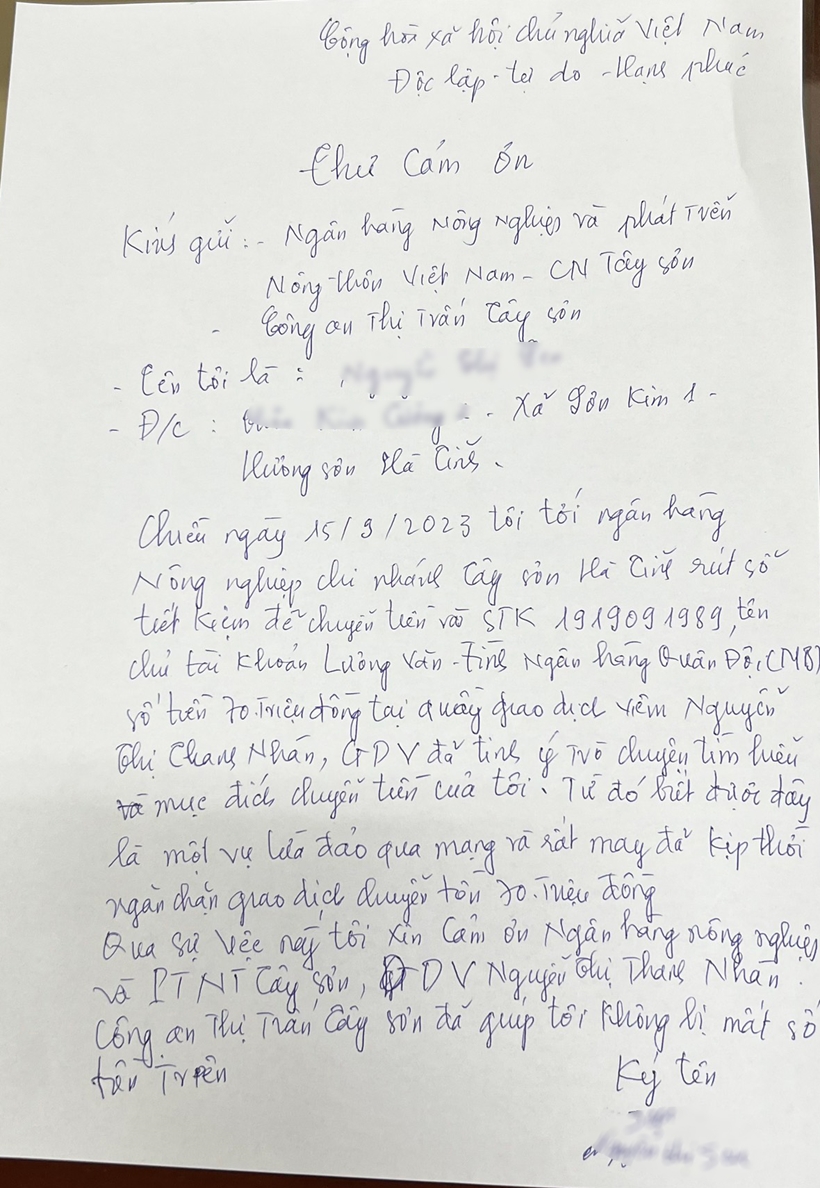 Cộng hòa xã hội chủ nghĩa Việt Nam
Độc lập - tự do - Hạnh phúc
Thư cảm ơn
Kính gửi: - Ngân hàng Nông Nghiệp và phát triển
Nông thôn Việt Nam - CN Tây Sơn
- Công an Thị Trấn Tây Sơn
- Tên tôi là :
- Đ/c : Xã Sơn Kim 1 -
Hương Sơn Hà Tĩnh.
Chiều ngày 15/9/2023 tôi tới ngân hàng
Nông nghiệp chi nhánh Tây Sơn Hà Tĩnh rút sổ
tiết kiệm để chuyển tiền vào STK 191909 1989, tên
chủ tài khoản Lương Văn Ngân hàng Quân Đội (MB)
số tiền 70. triệu đồng tại quầy giao dịch viêm Nguyễn
Thị Thanh Nhàn, GDV đã tinh ý trò chuyện tìm hiểu
mục đích chuyển tiền của tôi. Từ đó biết được đây
là một vụ lừa đảo qua mạng và rất may đã kịp thời
ngăn chặn giao dịch chuyển tiền 70. triệu đồng
Qua sự việc này tôi xin cảm ơn Ngân hàng nông nghiệp
và PTNT Tây Sơn, GDV Nguyễn Thị Thanh Nhàn.
Công an Thị Trấn Tây Sơn đã giúp tôi không bị mất số
tiền Trên
Ký tên